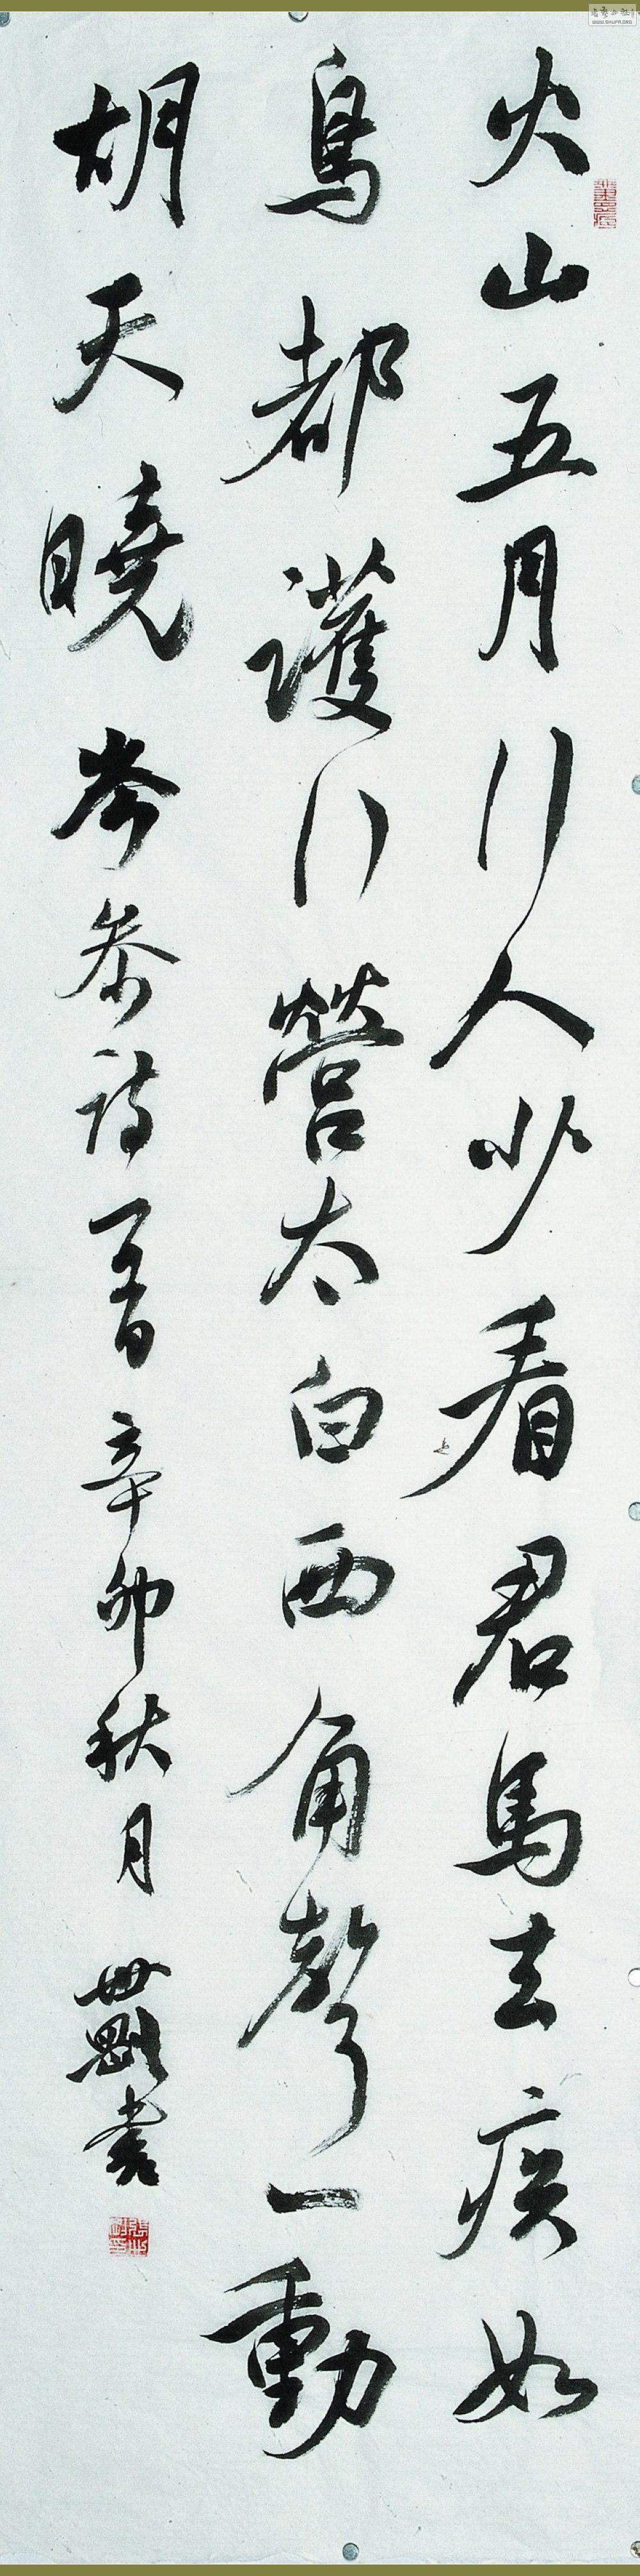 火山五月行人少看君馬去疾如
鳥都護行營太白西角聲一動
胡天曉 岑參詩一首 辛卯秋月 世剛書
WWW.SHUFA.ORG